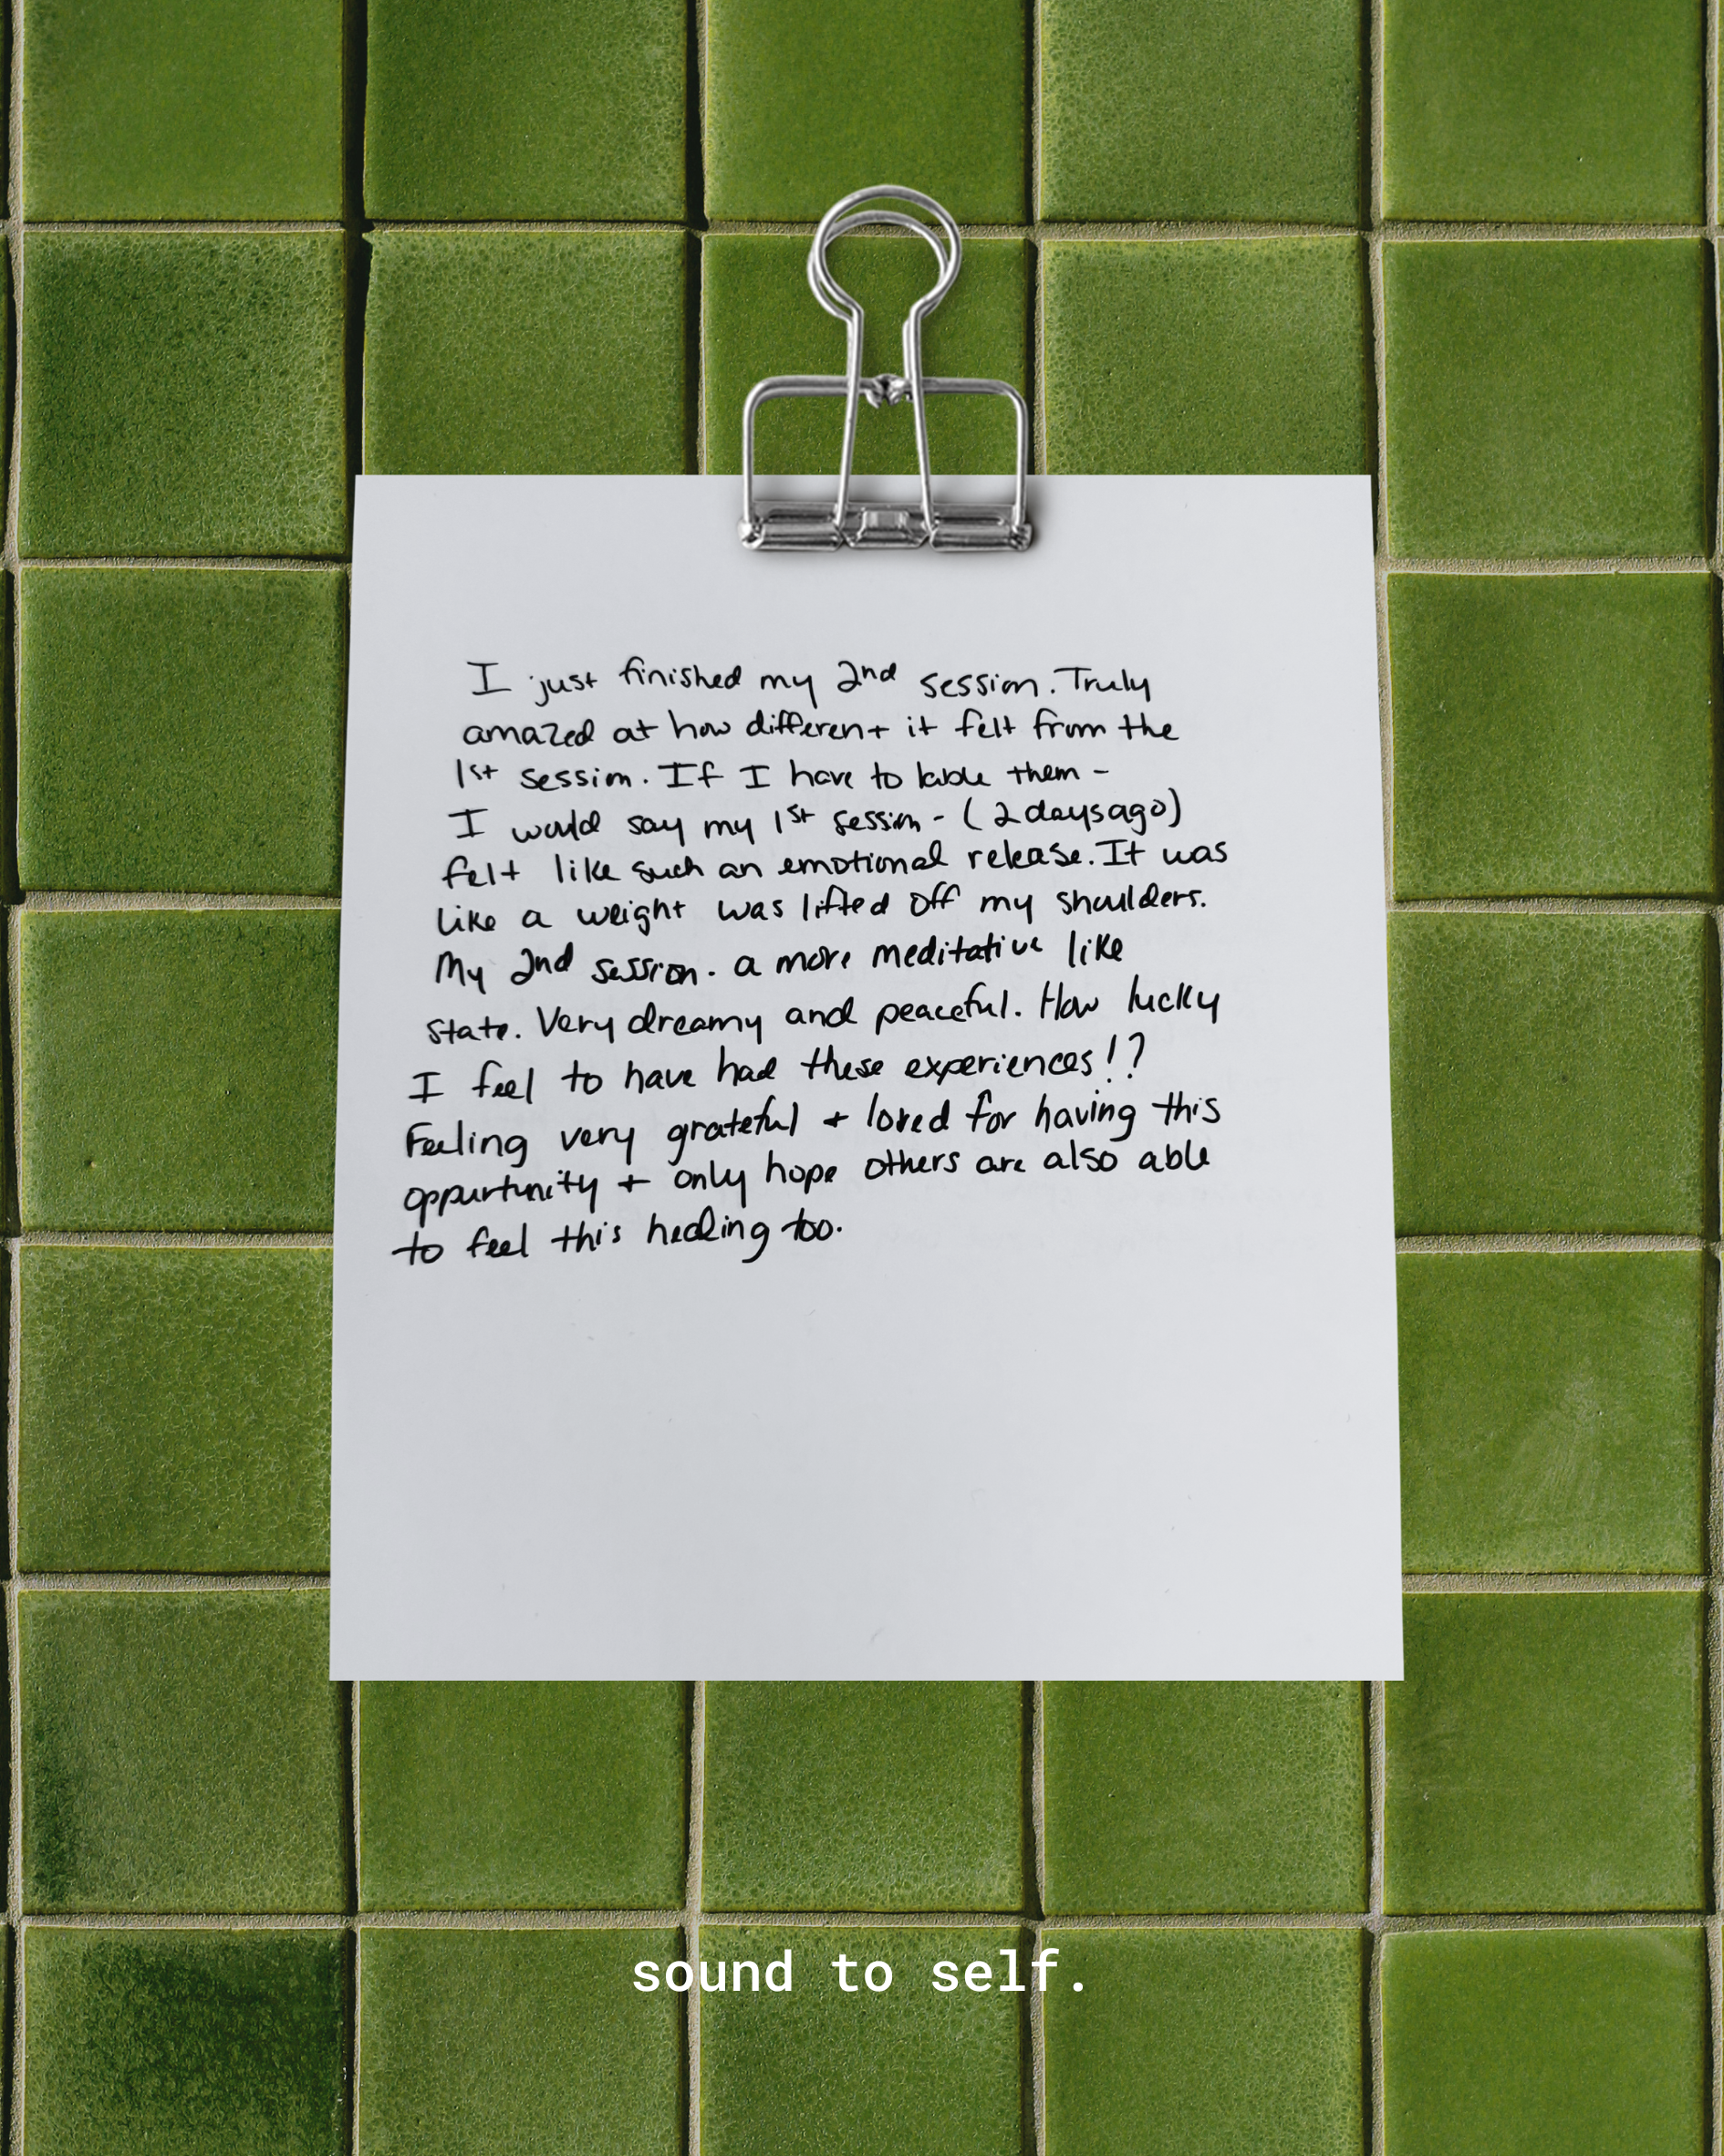 I just finished my 2nd session. Truly
amazed at how different it felt from the
1st session. If I have to lable them -
I would say my 1st session - (2 days ago)
felt like such an emotional release. It was
like a weight was lifted off my shoulders.
My 2nd session. a more meditative like
state. Very dreamy and peaceful. How lucky
I feel to have had these experiences!?
Feeling very grateful + loved for having this
oppurtunity + only hope others are also able
to feel this healing too.
sound to self.